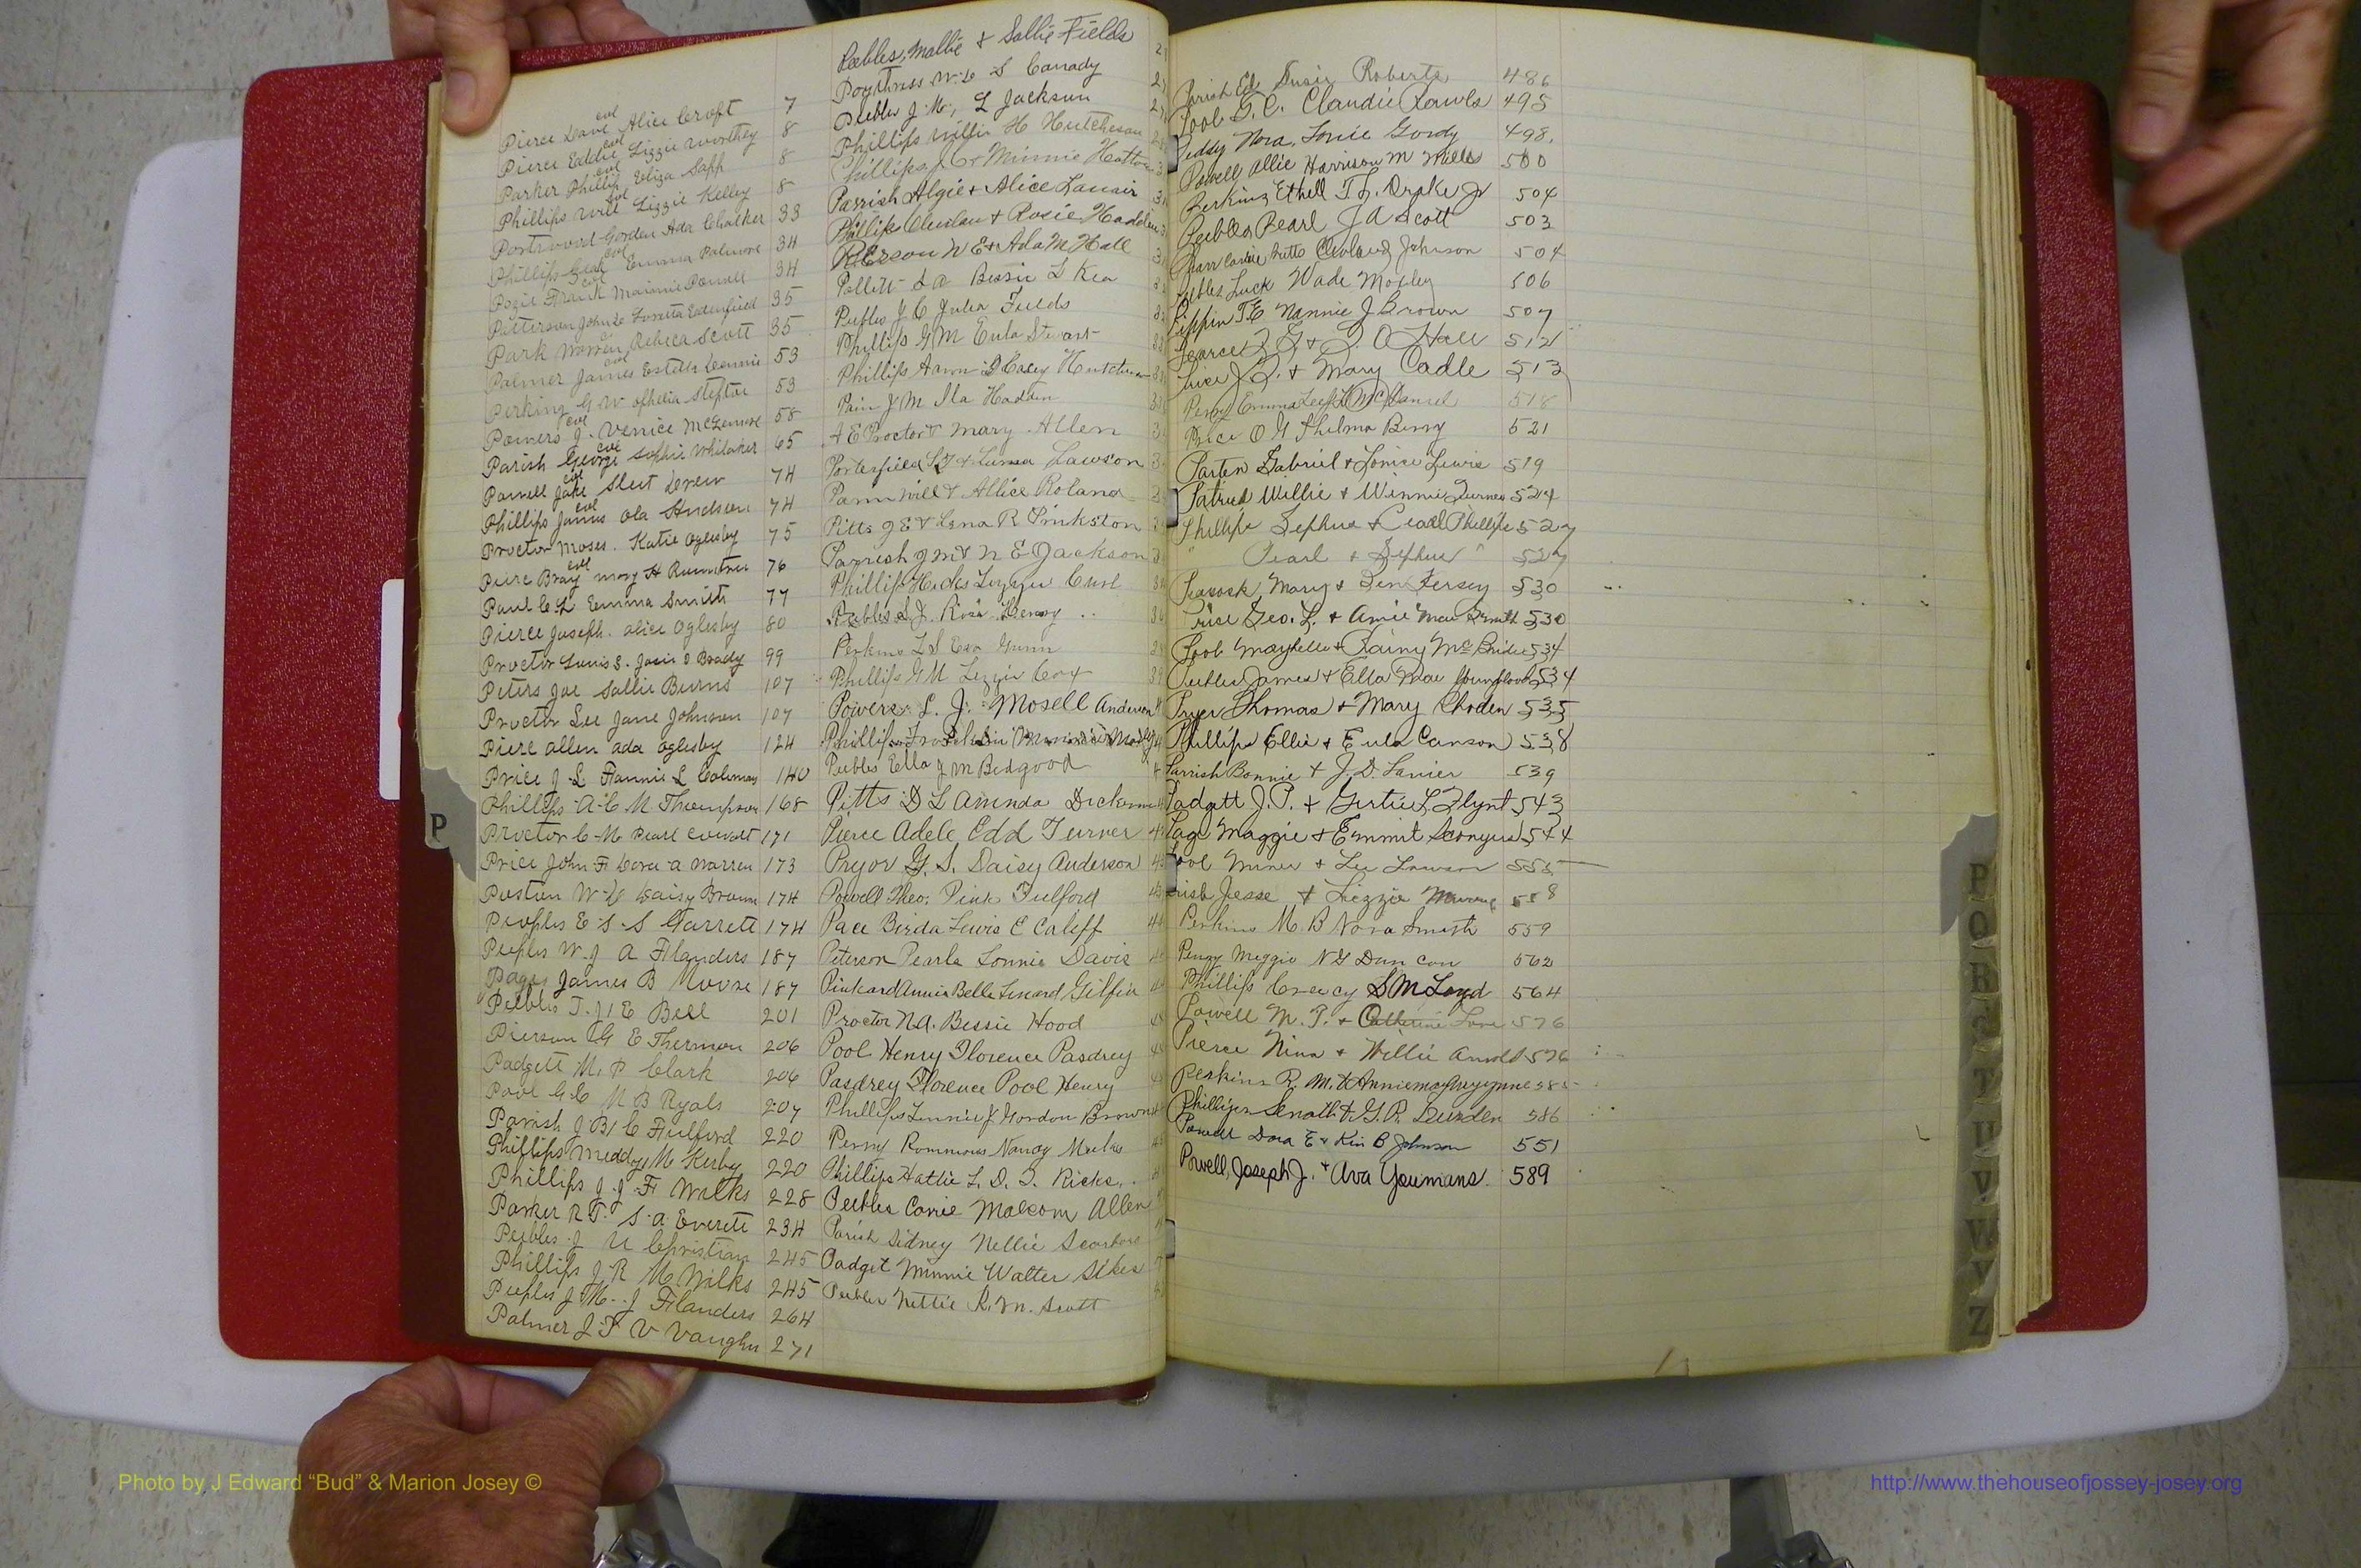 Pierce Dave col Alice Croft 7
Pierce Eddie col Lizzie Worthey 8
Parker Phillip col Eliza Sapp 8
Phillips Will col Lizzie Kelley 8
Portswood Gorden Ada Chalker 33
Phillips col Emma Palmore 34
Pozie Frank col Mainnie Powell 34
Patterson John Loretta Edenfield 35
Park Warren Rebeca Scott 35
Palmer James col Estella 53
Perkins G W Ophelia Steptoe 53
Powers J. col Venice McLemore 58
Parish George col Sophie Whitaker 65
Parnell Jake col Sleet Drew 74
Phillips James col Ola Hudson 74
Proctor Moses. Katie Oglesby 75
Piere Bray col Mary H 76
Paul C L Emma Smith 77
Pierce Joseph. Alice Oglesby 80
Proctor Louis S. Josie O Brady 99
Peters Joe Sallie Burns 107
Proctor Lee Jane Johnson 107
Piere Allen Ada Oglesby 124
Price J L Fannie L Coleman 140
Phillips A C M Thompson 168
Proctor C M Pearl 171
Price John F Cora A Warren 173
Poston W Daisy Brown 174
Peoples E S S Garrett 174
Peeples W. J A Flanders 187
Pages James B Moore 187
Peebles T. J E Bell 201
Pierson G E Thermon 206
Padgett M. P Clark 206
Pool G C M B Ryals 207
Parish J B C Fulford 220
Phillips Meddy M Kerby 220
Phillips J J F Wilks 228
Parker R T. S A Everett 234
Peebles J U Christian 245
Phillips J R M Wilks 245
Peeples J M J Flanders 264
Palmer J T V Vaughn 271
Peebles, Mallie & Sallie Fields
Poythress W. S Canady
Peebles J. M, L Jackson
Phillips Willie H Hutcheson
Phillips & Minnie Hatton
Parrish Algie & Alice Lanier
Phillips & Rosie Hadden
Pierson W E & Ada M. Hall
Pollett Bessie L Kea
Peebles J C Julia Fields
Phillips G M Eula Stewart
Phillips
Pain J. M Ila Hadden
A E Proctor & Mary Allen
Porterfield & Lawson
Parm Will & Allice Roland
Pitts J E & Lena R Pinkston
Parrish J M & N E Jackson
Phillips Hicks Lizzie Curl
Peebles S J. Rosa
Perkins L S Eva Gunn
Phillips G M Lizzie Cox
Powers L. J. Mosell Anderson
Phillips
Peebles Ella J M Bedgood
Pitts D L Amenda
Pierce Adele Edd Turner
Pryor G. S. Daisy Anderson
Powell Theo. Pink Fulford
Pace Birda Lewis E Caleff
Peterson Pearla Lonnie Davis
Pinkard Annie Belle Lenard Gilfin
Proctor N A. Bessie Hood
Pool Henry Florence Pasdrey
Pasdrey Florence Pool Henry
Phillips Linnie J Gordon Brown
Perry Rommous Nancy Meeks
Phillips Hattie L. D. S. Ricks
Peebles Carrie Malcom Allen
Parish Sidney Nellie Scarboro
Padget Minnie Walter Sikes
Peebles Nettie R. M. Scott
Parish Ed Susie Roberts 486
Pool G. C. Claudie Rawls 495
Peddy Nora, Louie Gordy 498.
Powell Allie Harrison M Mills 500
Perkins Ethell T. J. Drake Jr 504
Peebles Pearl J A Scott 503
Cleveland Johnson 504
Peebles Luck Wade Mobley 506
Pippin T E Nannie J Brown 507
Pearce & Hall 512
Price J. D. & Mary Cadle 513
Perry Emma McDaniel 518
Price O H Thelma Berry 521
Parten Gabriel & Louise Lewis 519
Patrick Willie & Winnie Turner 524
Phillips Sephus & Pearl Phillips 527
" Pearl & Sephus " 527
Peacock Mary & Ben Kersey 530
Price Geo. L. & Amie Mae Smith 530
Pool Maybelle & Rainy McBride 534
Peebles James & Ella Mae Youngblood 534
Pryer Thomas & Mary Rhoden 535
Phillips Ellie & Eula Canson 538
Parrish Bonnie & J. D. Lanier 539
Padgett J. P. & Gertie L Flynt 543
Page Maggie & Emmit Sconyers 544
Pool Miner & Leu Lawson 555
Parish Jesse & Lizzie 558
Perkins M. B Nora Smith 559
Perry Meggie N G Duncan 562
Phillips Creacy S M Loyd 564
Powell M. P. & Catherine Love 576
Pierce Nina & Willie Arnold 576
Perkins R. M. & Anniemay 585
Phillips Senath & G. R. Durden 586
Powell Dora E & Kin B Johnson 551
Powell, Joseph J. & Ava Youmans 589
P
P
Q
R
S
T
U
V
W
Y
Z
Photo by J Edward “Bud” & Marion Josey ©
http://www.thehouseofjossey-josey.org